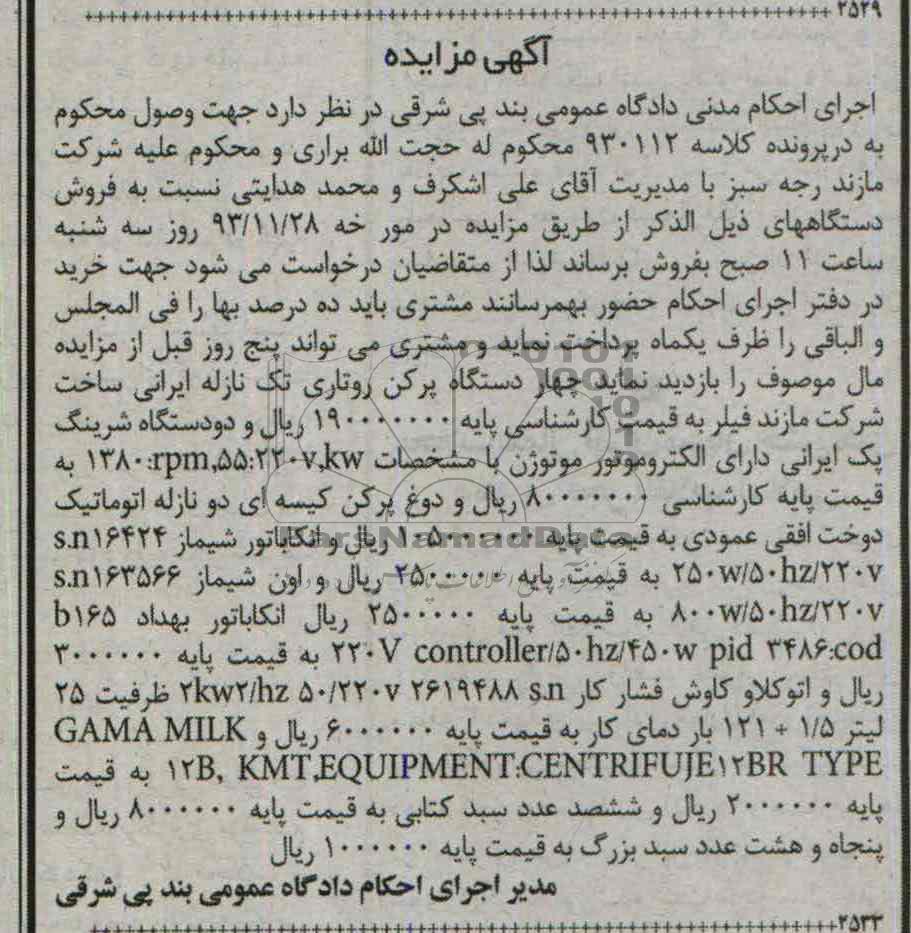 ۲۵۲۹
آگهی مزایده
اجرای احکام مدنی دادگاه عمومی بند پی شرقی در نظر دارد جهت وصول محکوم
به درپرونده کلاسه ۹۳۰۱۱۲ محکوم له حجت الله براری و محکوم علیه شرکت
مازند رجه سبز با مدیریت آقای علی اشکرف و محمد هدایتی نسبت به فروش
دستگاههای ذیل الذکر از طریق مزایده در مور خه ۹۳/۱۱/۲۸ روز سه شنبه
ساعت ۱۱ صبح بفروش برساند لذا از متقاضیان درخواست می شود جهت خرید
در دفتر اجرای احکام حضور بهمرسانند مشتری باید ده درصد بها را فی المجلس
و الباقی را ظرف یکماه پرداخت نماید و مشتری می تواند پنج روز قبل از مزایده
مال موصوف را بازدید نماید چهار دستگاه پرکن روتاری تک نازله ایرانی ساخت
شرکت مازند فیلر به قیمت کارشناسی پایه ۱۹۰۰۰۰۰۰۰ ریال و دودستگاه شرینگ
پک ایرانی دارای الکتروموتور موتوژن با مشخصات ۱۳۸۰:rpm,۵۵:۲۲۰v,kw به
قیمت پایه کارشناسی ۸۰۰۰۰۰۰۰ ریال و دوغ پرکن کیسه ای دو نازله اتوماتیک
دوخت افقی عمودی به قیمت پایه ۱۰۵۰۰۰۰۰۰ ریال و انکاباتور شیماز s.n۱۶۴۲۴
۲۵۰w/۵۰hz/۲۲۰v به قیمت پایه ۲۵۰۰۰۰۰ ریال و اون شیماز s.n۱۶۳۵۶۶
۸۰۰w/۵۰hz/۲۲۰v به قیمت پایه ۲۵۰۰۰۰۰ ریال انکاباتور بهداد b۱۶۵
۲۲۰V controller/۵۰hz/۴۵۰w pid ۳۴۸۶:cod به قیمت پایه ۳۰۰۰۰۰۰
ریال و اتوکلاو کاوش فشار کار ۲kw۲/hz ۵۰/۲۲۰v ۲۶۱۹۴۸۸ s.n ظرفیت ۲۵
لیتر ۱/۵ + ۱۲۱ بار دمای کار به قیمت پایه ۶۰۰۰۰۰۰ ریال و GAMA MILK
۱۲B, KMT,EQUIPMENT:CENTRIFUJE۱۲BR TYPE به قیمت
پایه ۲۰۰۰۰۰۰ ریال و ششصد عدد سبد کتابی به قیمت پایه ۸۰۰۰۰۰۰ ریال و
پنجاه و هشت عدد سبد بزرگ به قیمت پایه ۱۰۰۰۰۰۰ ریال
مدیر اجرای احکام دادگاه عمومی بند پی شرقی
۲۵۳۳